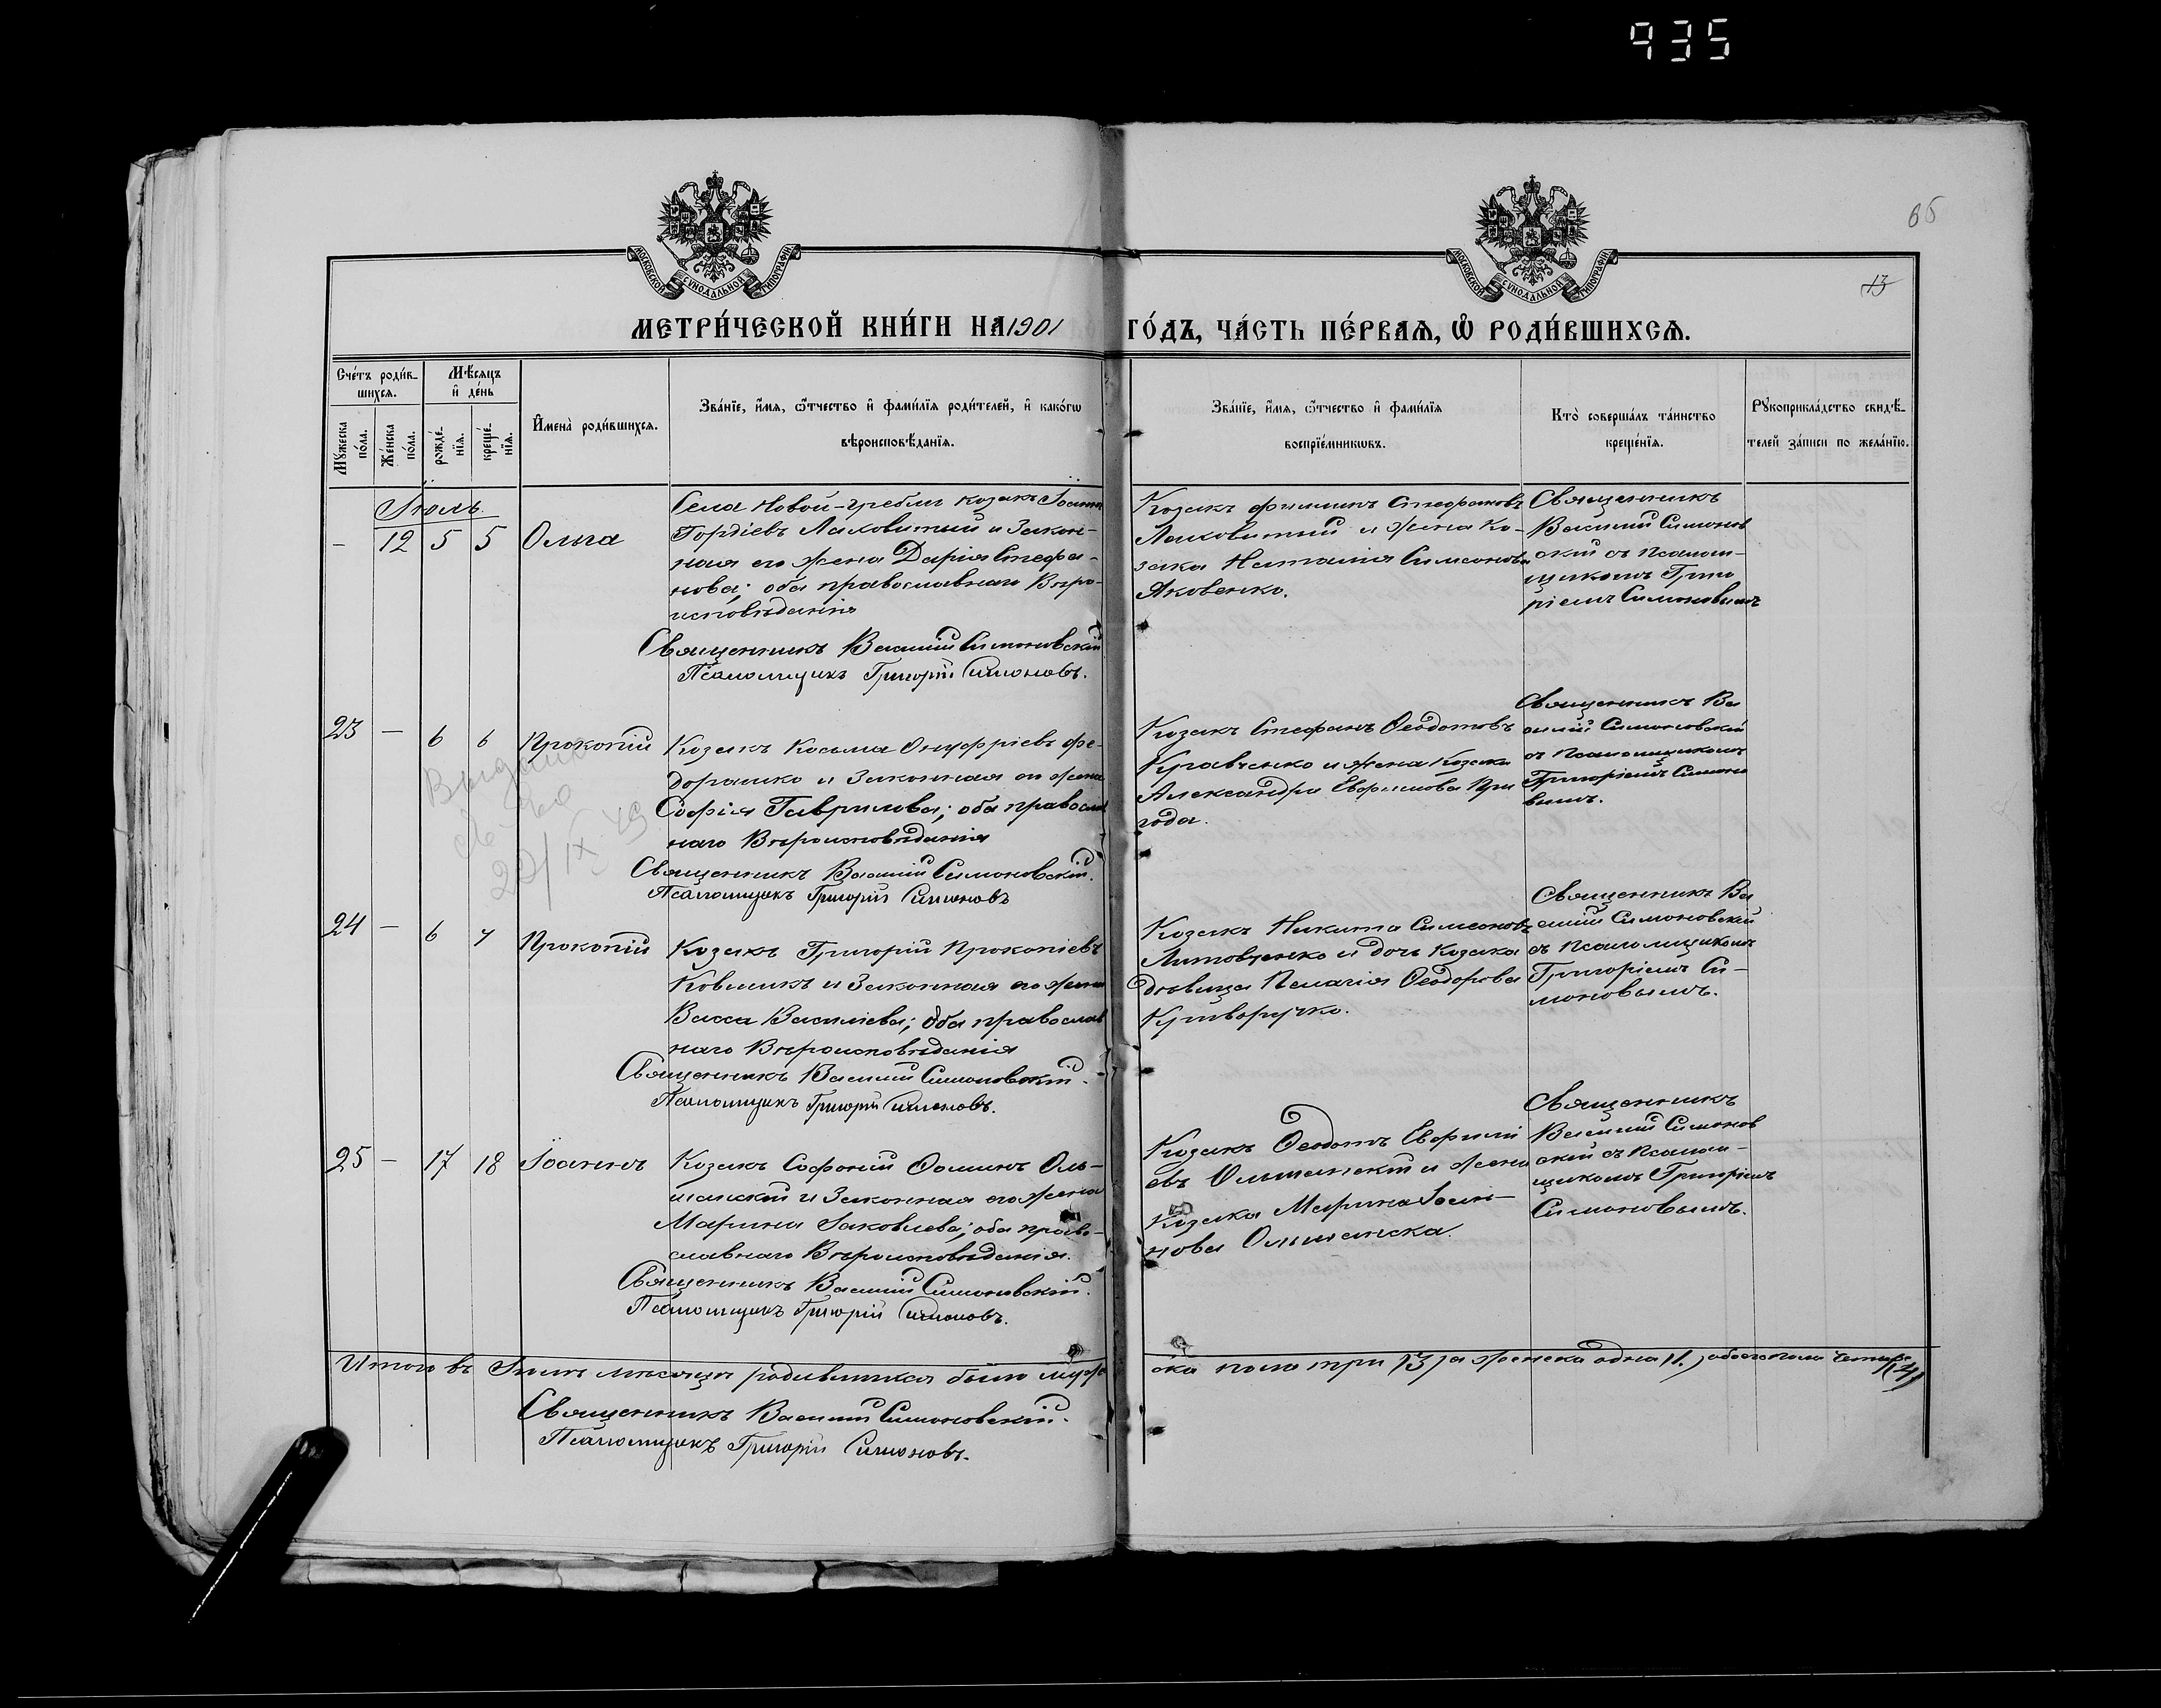 935
65
13
МОСКОВСКОЙ СѴНОДАЛЬНОЙ ТИПОГРАФІИ
МОСКОВСКОЙ СѴНОДАЛЬНОЙ ТИПОГРАФІИ
МЕТРИ́ЧЕСКОЙ КНИ́ГИ НА 1901 ГО́ДЪ, ЧА́СТЬ ПЕ́РВАѦ, Ѽ РОДИ́ВШИХСѦ.
Сче́тъ роди́в-
шихсѧ.
Мѣ́сѧцъ
и҆ де́нь
Мꙋ́жеска
по́ла.
Же́нска
по́ла.
рожде́-
нїѧ.
креще́-
нїѧ.
И҆мена̀ роди́вшихсѧ.
Зва́нїе, и҆́мѧ, ѻ҆́тчество и҆ фами́лїѧ роди́телей, и҆ како́гѡ
вѣроисповѣ́данїѧ.
Зва́нїе, и҆́мѧ, ѻ҆́тчество и҆ фами́лїѧ
воспрїе́мникѡвъ.
Кто̀ соверша́лъ та́инство
креще́нїѧ.
Рꙋкоприкла́дство свидѣ́-
телей за́писи по жела́нїю.
Іюль.
- 12 5 5 Ольга
Села Новой-гребли козакъ Іоаннъ
Гордіевъ Лаковитый и Закон-
ная его жена Дарія Стефа-
нова; оба православнаго Вѣро-
исповѣданія
Священникъ Василій Симоновскій
Псаломщикъ Григорій Симоновъ.
Козакъ Филиппъ Стефановъ
Лаковитый и жена ко-
зака Наталія Симеонова
Яковенко.
Священникъ
Василій Симонов
скій съ псалом-
щикомъ Григо
ріемъ Симоновымъ
23 - 6 6 Прокопій
Козакъ Косьма Онуфріевъ Фе-
дорашко и Законная его жена
Софія Гаврилова; оба православ
наго Вѣроисповѣданія
Священникъ Василій Симоновскій.
Псаломщикъ Григорій Симоновъ
Выдано
св-во
22/IX 49
Козакъ Стефанъ Ѳеодотовъ
Кравченко и жена козака
Александра Евфимова При
года.
Священникъ Ва
силій Симоновскій
съ псаломщикомъ
Григоріемъ Симоно
вымъ.
24 - 6 7 Прокопій
Козакъ Григорій Прокопіевъ
Ковшикъ и Законная его жена
Васса Василіева; оба православ
наго Вѣроисповѣданія
Священникъ Василій Симоновскій.
Псаломщикъ Григорій Симоновъ.
Козакъ Никита Симеоновъ
Литовченко и дочь козака
дѣвица Пелагія Ѳеодорова
Криворучко.
Священникъ Ва
силій Симоновскій
съ псаломщикомъ
Григоріемъ Си-
моновымъ.
25 - 17 18 Іоаннъ
Козакъ Софоній Ѳоминъ Оль-
шанскій и Законная его жена
Марина Іаковлева; оба право-
славнаго Вѣроисповѣданія.
Священникъ Василій Симоновскій.
Псаломщикъ Григорій Симоновъ.
Козакъ Ѳеодотъ Евфиміи
евъ Ольшанскій и жена
козака Марина Іоан-
нова Ольшанска.
Священникъ
Василій Симонов
скій съ псалом-
щикомъ Григоріемъ
Симоновымъ.
Итого въ Іюлѣ мѣсяцѣ родившихся было муже ска пола три /3/ а женска одна /1./ обоего пола четыре /4/
Священникъ Василій Симоновскій.
Псаломщикъ Григорій Симоновъ.